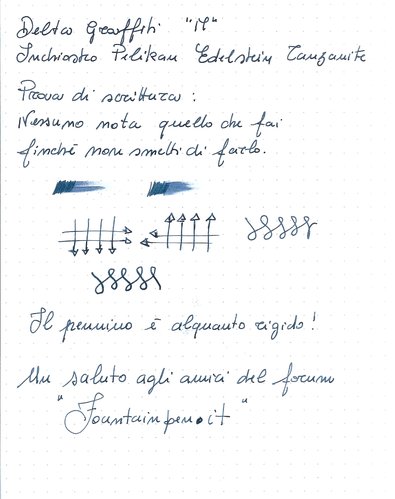 Delta Graffiti "M"
Inchiostro Pelikan Edelstein Tanzanite
Prova di scrittura:
Nessuno nota quello che fai
finché non smetti di farlo.
Il pennino è alquanto rigido!
Un saluto agli amici del forum
"Fountainpen.it"